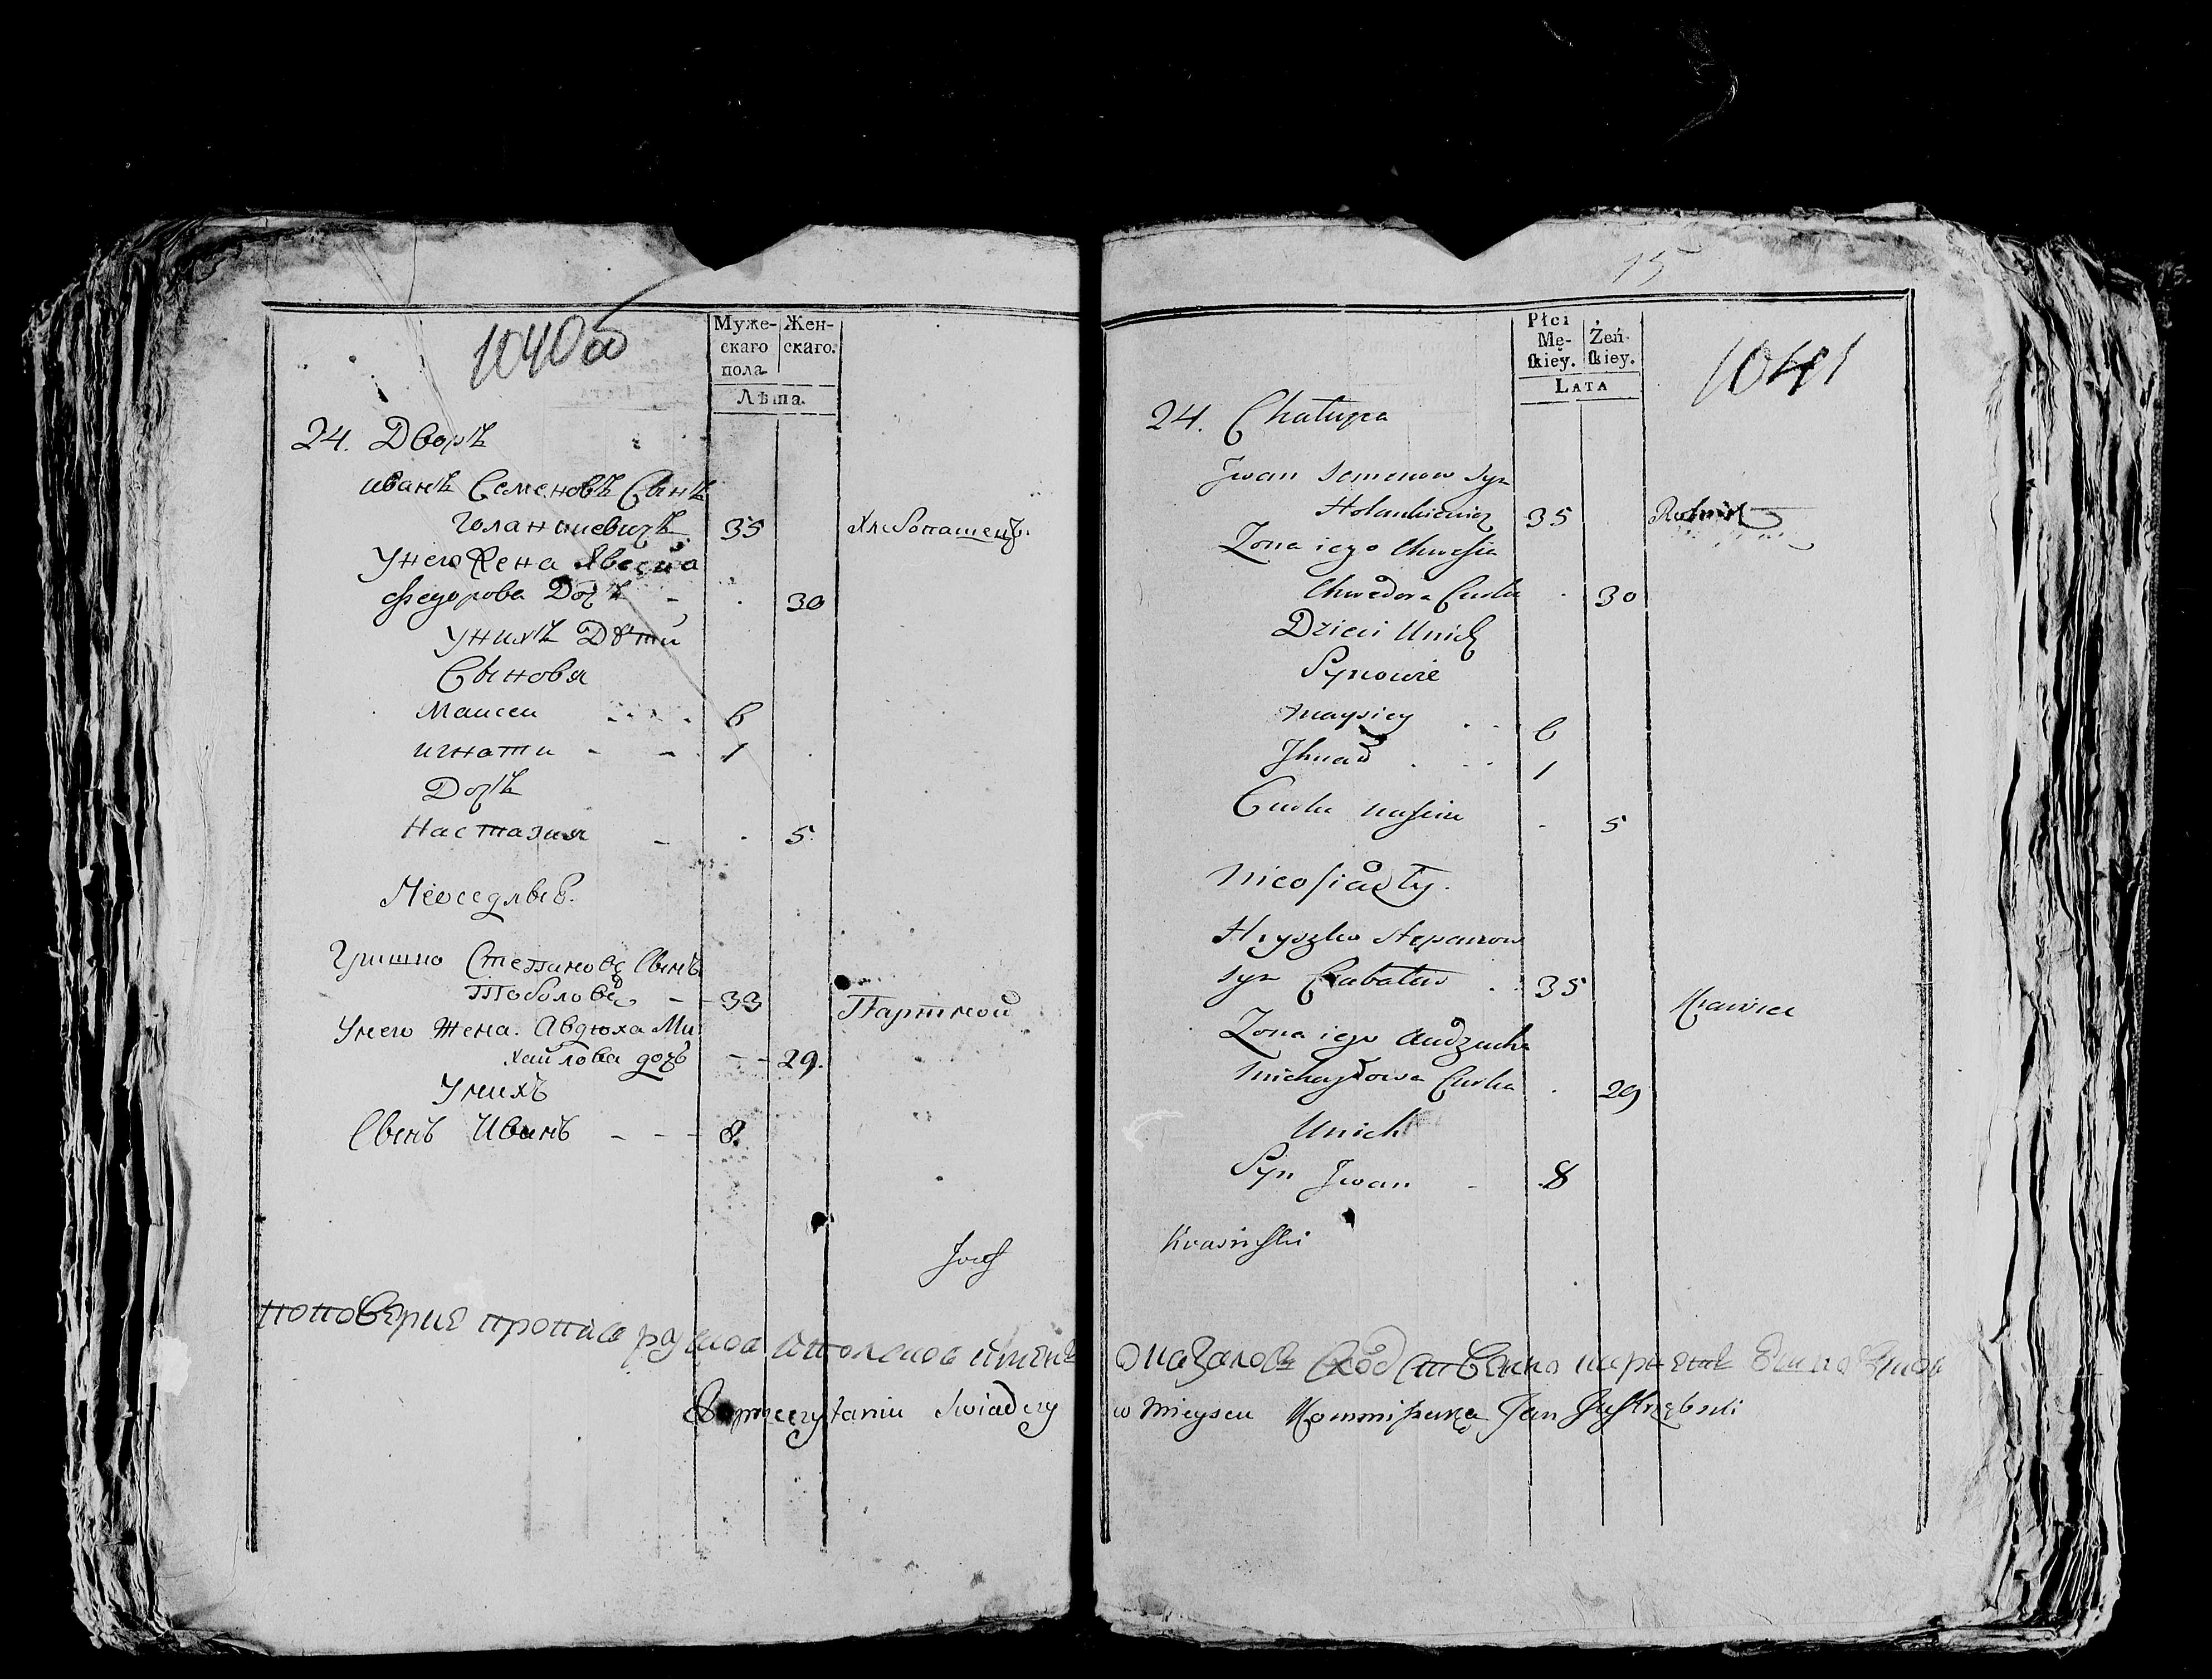 1040 об
Муже-
скаго
пола
Жен-
скаго.
Лѣта.
24. Дворъ
иванъ Семеновъ Сынъ
Голанкиевичъ 35 Хлебопашецъ.
У него Жена Хвесиа
Федорова Дочъ - . 30
У нихъ Дѣти
Сыновя
Маисеи . . . . 6
игнати - - . 1 .
Дочъ
Настазия - . 5.
Неоседлые.
Гришко Степановъ Сынъ
- - 33 Партной
У него Жена. Авдюха Ми:
хайлова дочъ - - 29.
У нихъ
Сынъ Иванъ - - - 8.
Jozef
поповерке
Przeczytaniu Swiadczy
15
Płci
Mę-
skiey.
Żeń-
skiey.
Lata
1041
24. Chałupa
Jwan Semenow Syn
Holankiewicz 35 Rolnik
Zona iego Chwesia
Chwedora Curka . 30
Dzieci Unich
Synowie
Maysiey . . . 6
Jhnad . . . 1
Curka Nastzia . 5
Nieosiadły.
Hryszko Stepanow
syn . . 35 Krawiec
Zona iego Audziucha
Michayłowa Curka . 29
Unich
Syn Jwan - 8
Krasinski
оказалось
w Mieyscu Kommissarza Jan Jastrzębski